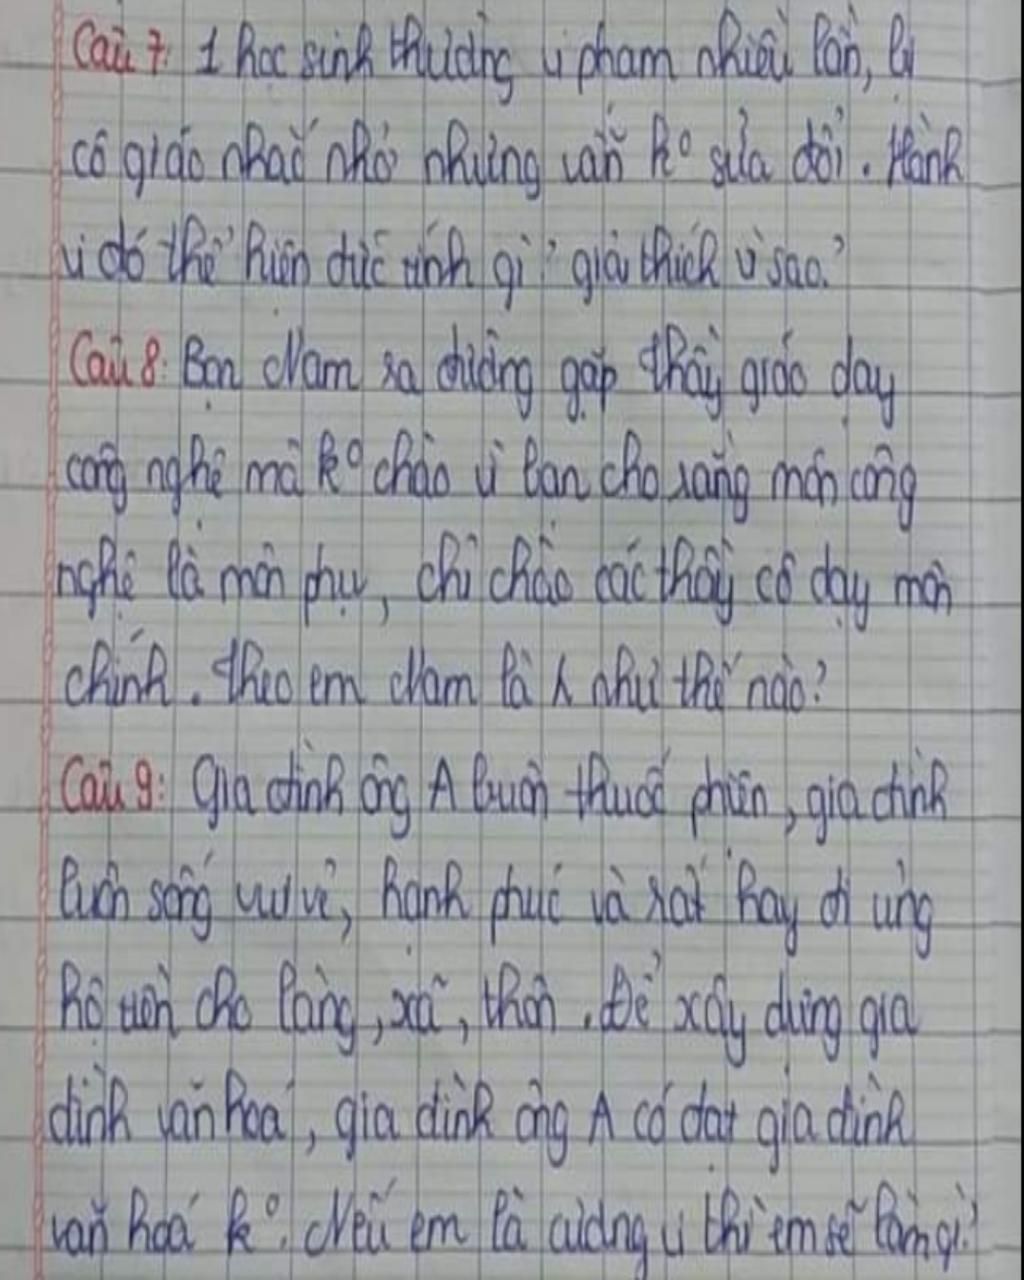 Câu 7: 1 học sinh thường vi phạm nhiều lần, bị
cô giáo nhắc nhở nhưng vẫn kº sửa đổi. Hành
vi đó thể hiện đức tính gì? giải thích vì sao?
Câu 8: Bạn Nam ra đường gặp thầy giáo dạy
công nghệ mà kº chào vì bạn cho rằng môn công
nghệ là môn phụ, chỉ chào các thầy cô dạy môn
chính. Theo em Nam là ng như thế nào?
Câu 9: Gia đình ông A buôn thuốc phiện, gia đình
luôn sống vui vẻ, hạnh phúc và rất hay đi ủng
hộ tiền cho làng, xã, thôn. Để xây dựng gia
đình văn hoá, gia đình ông A có đạt gia đình
văn hoá kº. Nếu em là cương vị thì em sẽ làm gì?